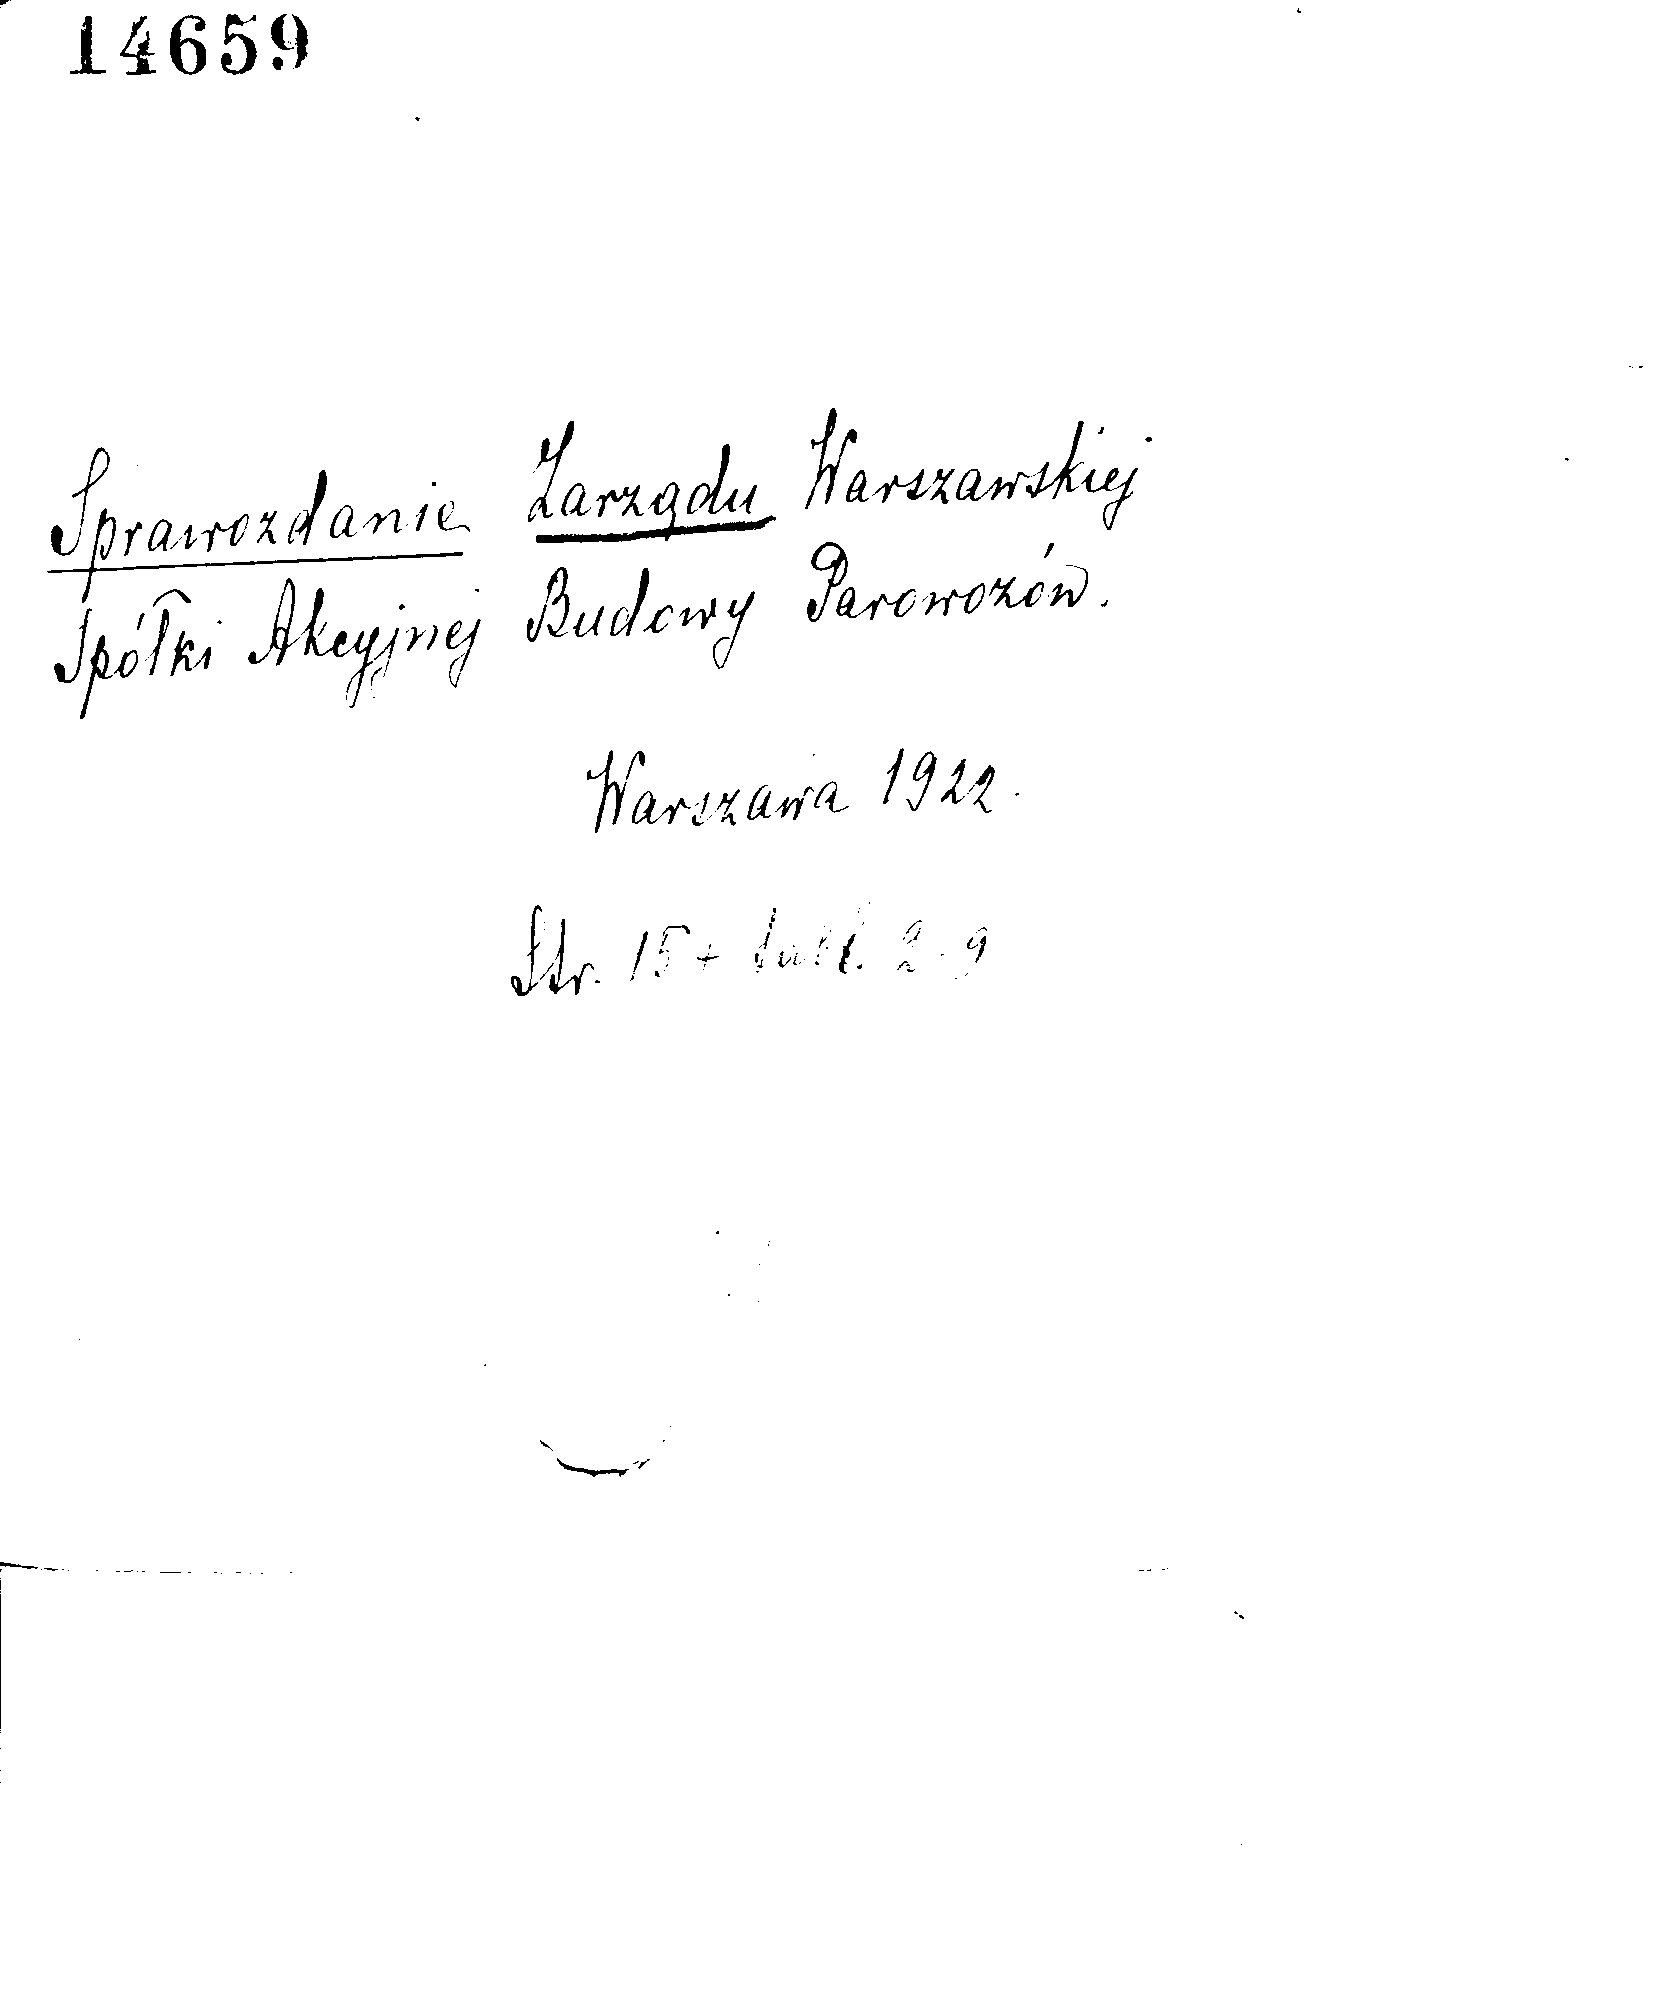 14659
Sprawozdanie Zarządu Warszawskiej
Spółki Akcyjnej Budowy Parowozów.
Warszawa 1922.
Str. 15 + tabl. 2.9